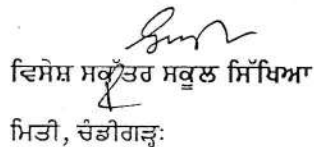 ਵਿਸੇਸ਼ ਸਕੱਤਰ ਸਕੂਲ ਸਿੱਖਿਆ
ਮਿਤੀ, ਚੰਡੀਗੜ੍ਹਃ